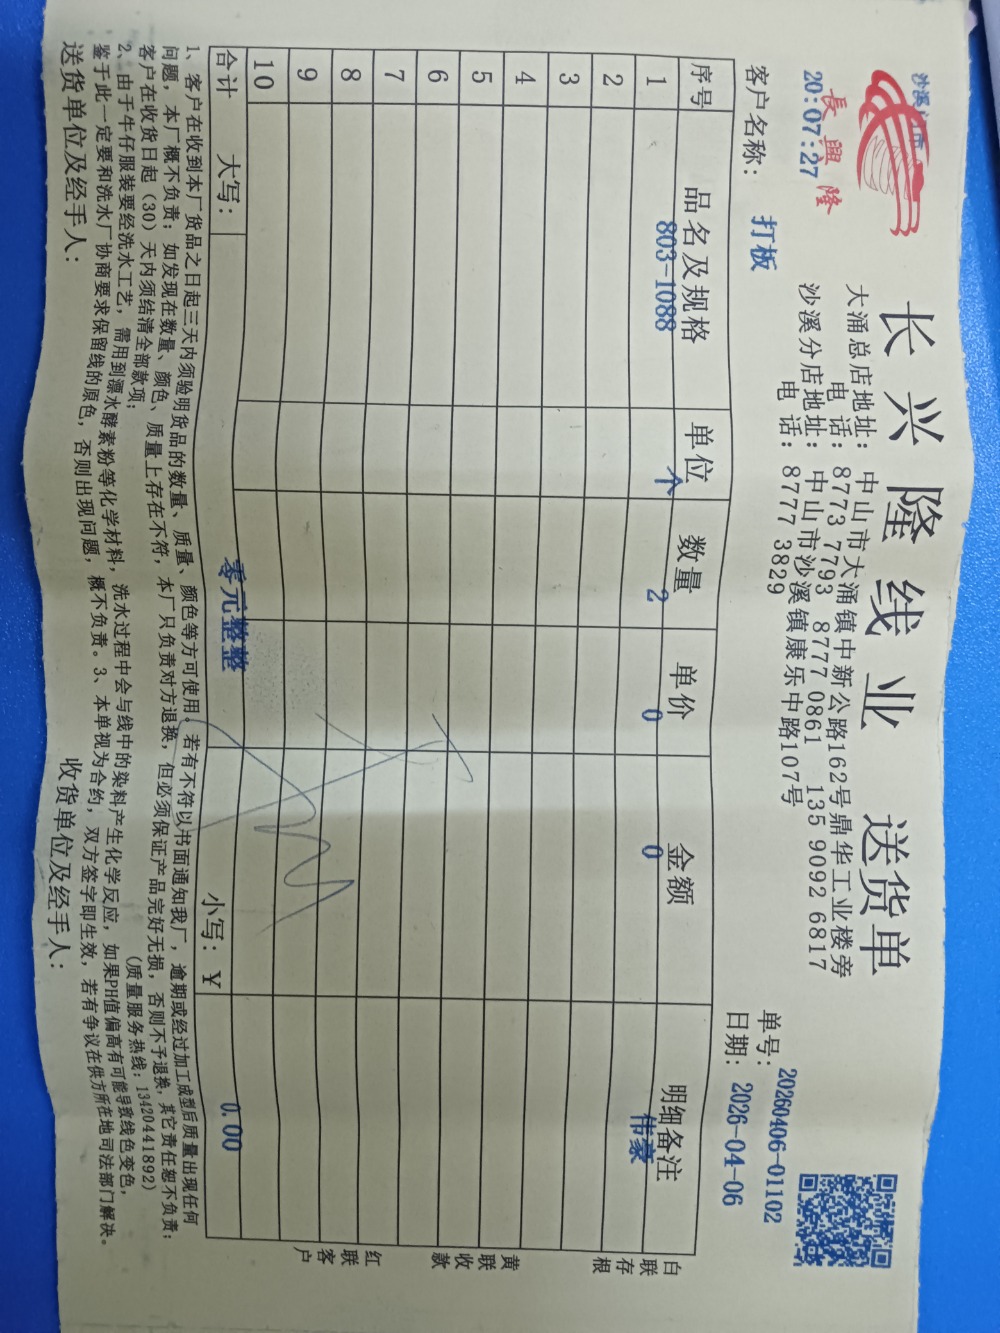 沙溪
20:07:27
長興隆
长兴隆线业 送货单
大涌总店地址：中山市大涌镇中新公路162号鼎华工业楼旁
电 话：8773 7793 8777 0861 135 9092 6817
沙溪分店地址：中山市沙溪镇康乐中路107号
电 话：8777 3829
单号：20260406-01102
客户名称：打板
日期：2026-04-06
序号 品名及规格 单位 数量 单价 金额 明细备注
1 803-1088 个 2 0 0 伟豪
2
3
4
5
6
7
8
9
10
合计 大写：零元整整 小写：￥ 0.00
白联存根
黄联收款
红联客户
1、客户在收到本厂货品之日起三天内须验明货品的数量、质量、颜色等方可使用。若有不符以书面通知我厂，逾期或经过加工成型后质量出现任何
问题，本厂概不负责；如发现在数量、颜色、质量上存在不符，本厂只负责对方退换，但必须保证产品完好无损，否则不予退换，其它责任恕不负责；
客户在收货日起（30）天内须结清全部款项； （质量服务热线：13420441892）
2、由于牛仔服装要经洗水工艺，需用到漂水酵素粉等化学材料，洗水过程中会与线中的染料产生化学反应，如果PH值偏高有可能导致线色变色，
鉴于此一定要和洗水厂协商要求保留线的原色，否则出现问题，概不负责。3、本单视为合约，双方签字即生效，若有争议在供方所在地司法部门解决。
送货单位及经手人： 收货单位及经手人：